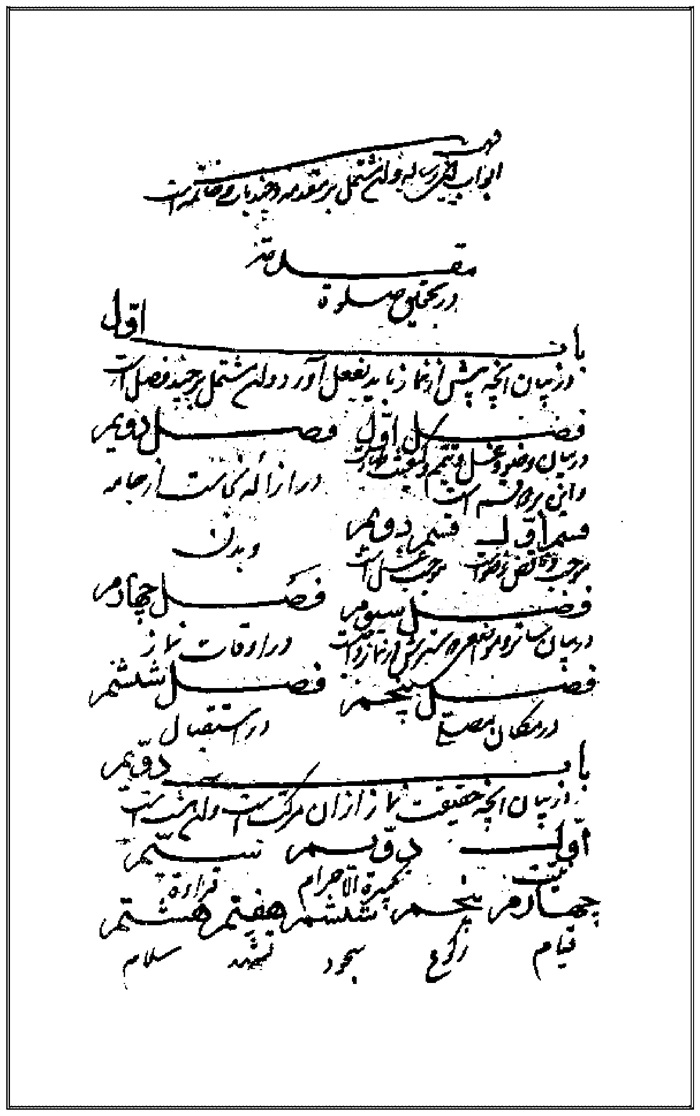 فهرست
ابواب این رساله و آن مشتمل بر مقدمه و چند باب و خاتمه است
مقدمه
در تحقیق صلوة
باب اول
در بیان آنچه پیش از نماز باید بفعل آورد و آن مشتمل بر چند فصل است
فصل اول فصل دویم
در بیان وضو و غسل و تیمم و کیفیت طهارت در ازاله نجاست از جامه
و این بر دو قسم است
قسم اول قسم دویم و بدن
موجب وضو موجب غسل است
فصل سیوم فصل چهارم
در بیان ستر در اوقات نماز
فصل پنجم فصل ششم
در مکان مصلی در استقبال
باب دویم
در بیان آنچه حقیقت نماز از آن مرکب است و آن هشت است
اول دویم سیم
نیت تکبیرة الاحرام قراءة
چهارم پنجم ششم هفتم هشتم
قیام رکوع سجود تشهد سلام